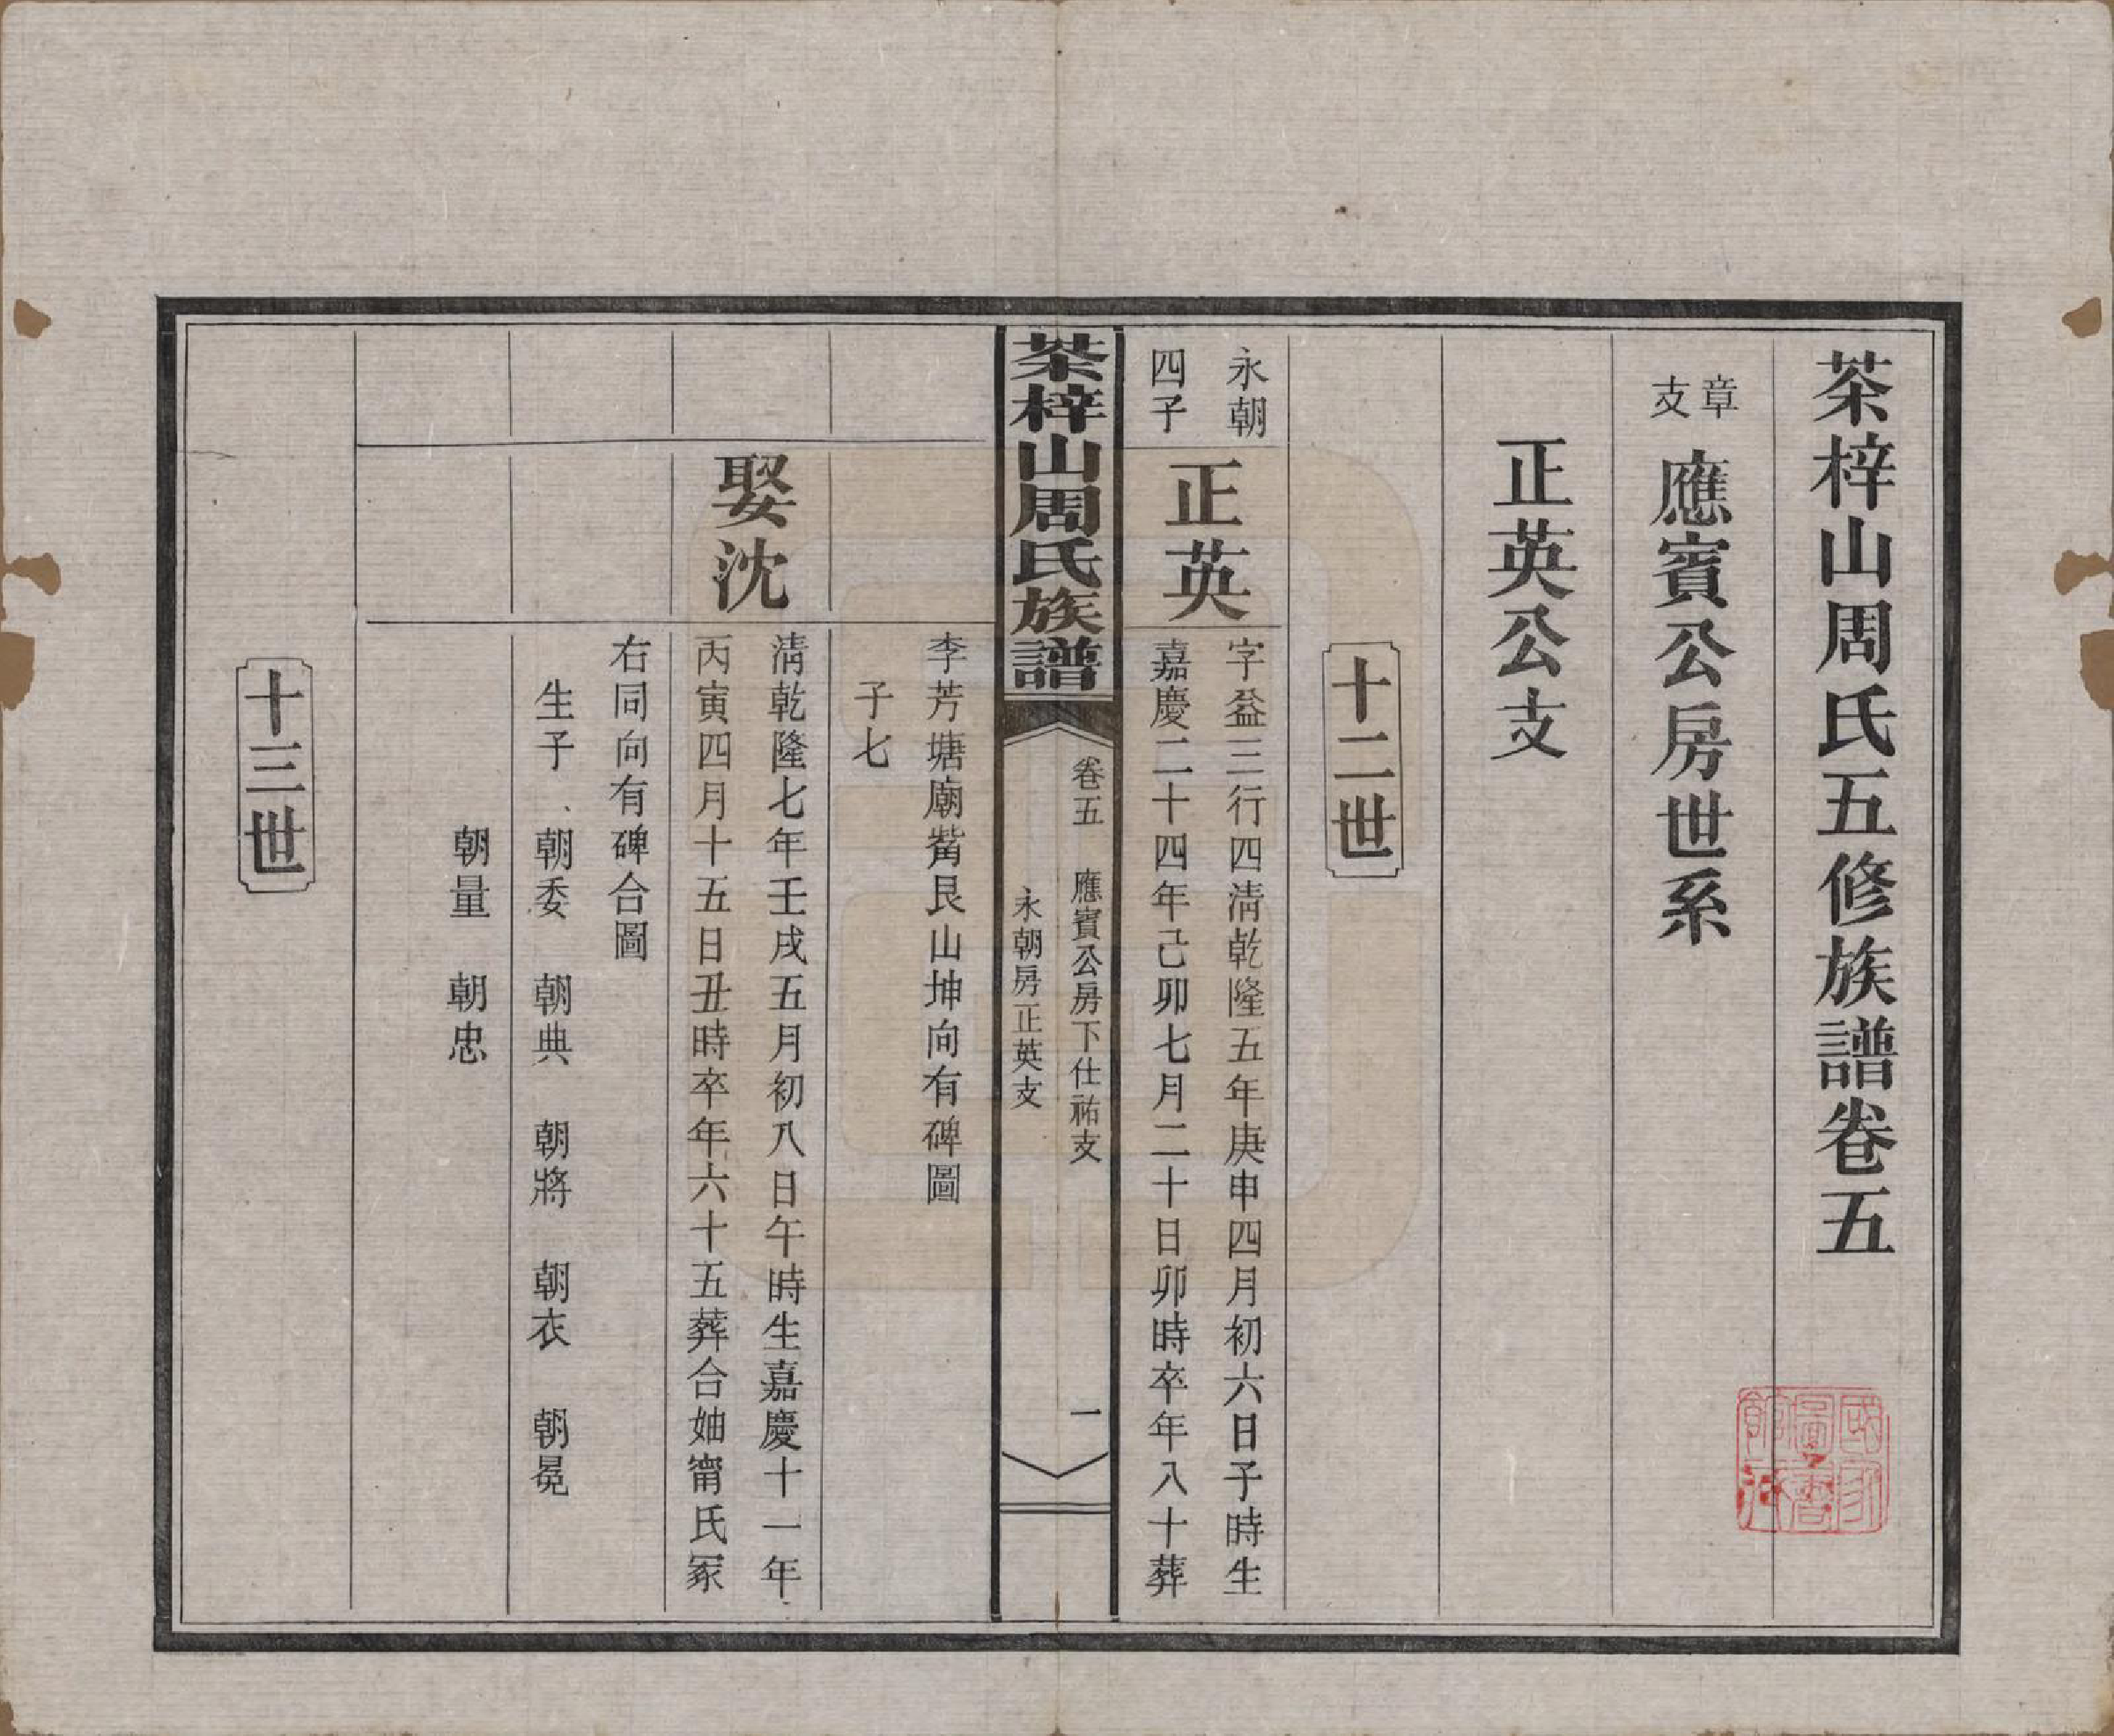 茶梓山周氏五修族譜卷五
章支
應賓公房世系
正英公支
十二世
永朝
四子
正英
字益三行四清乾隆五年庚申四月初六日子時生
嘉慶二十四年己卯七月二十日卯時卒年八十葬
茶梓山周氏族譜
卷五
應賓公房下仕祐支
永朝房正英支
一
李芳塘廟觜艮山坤向有碑圖
子七
娶沈
清乾隆七年壬戌五月初八日午時生嘉慶十一年
丙寅四月十五日丑時卒年六十五葬合妯甯氏冢
右同向有碑合圖
生子 朝委 朝典 朝將 朝衣 朝冕
朝量 朝忠
十三世
國家圖書館